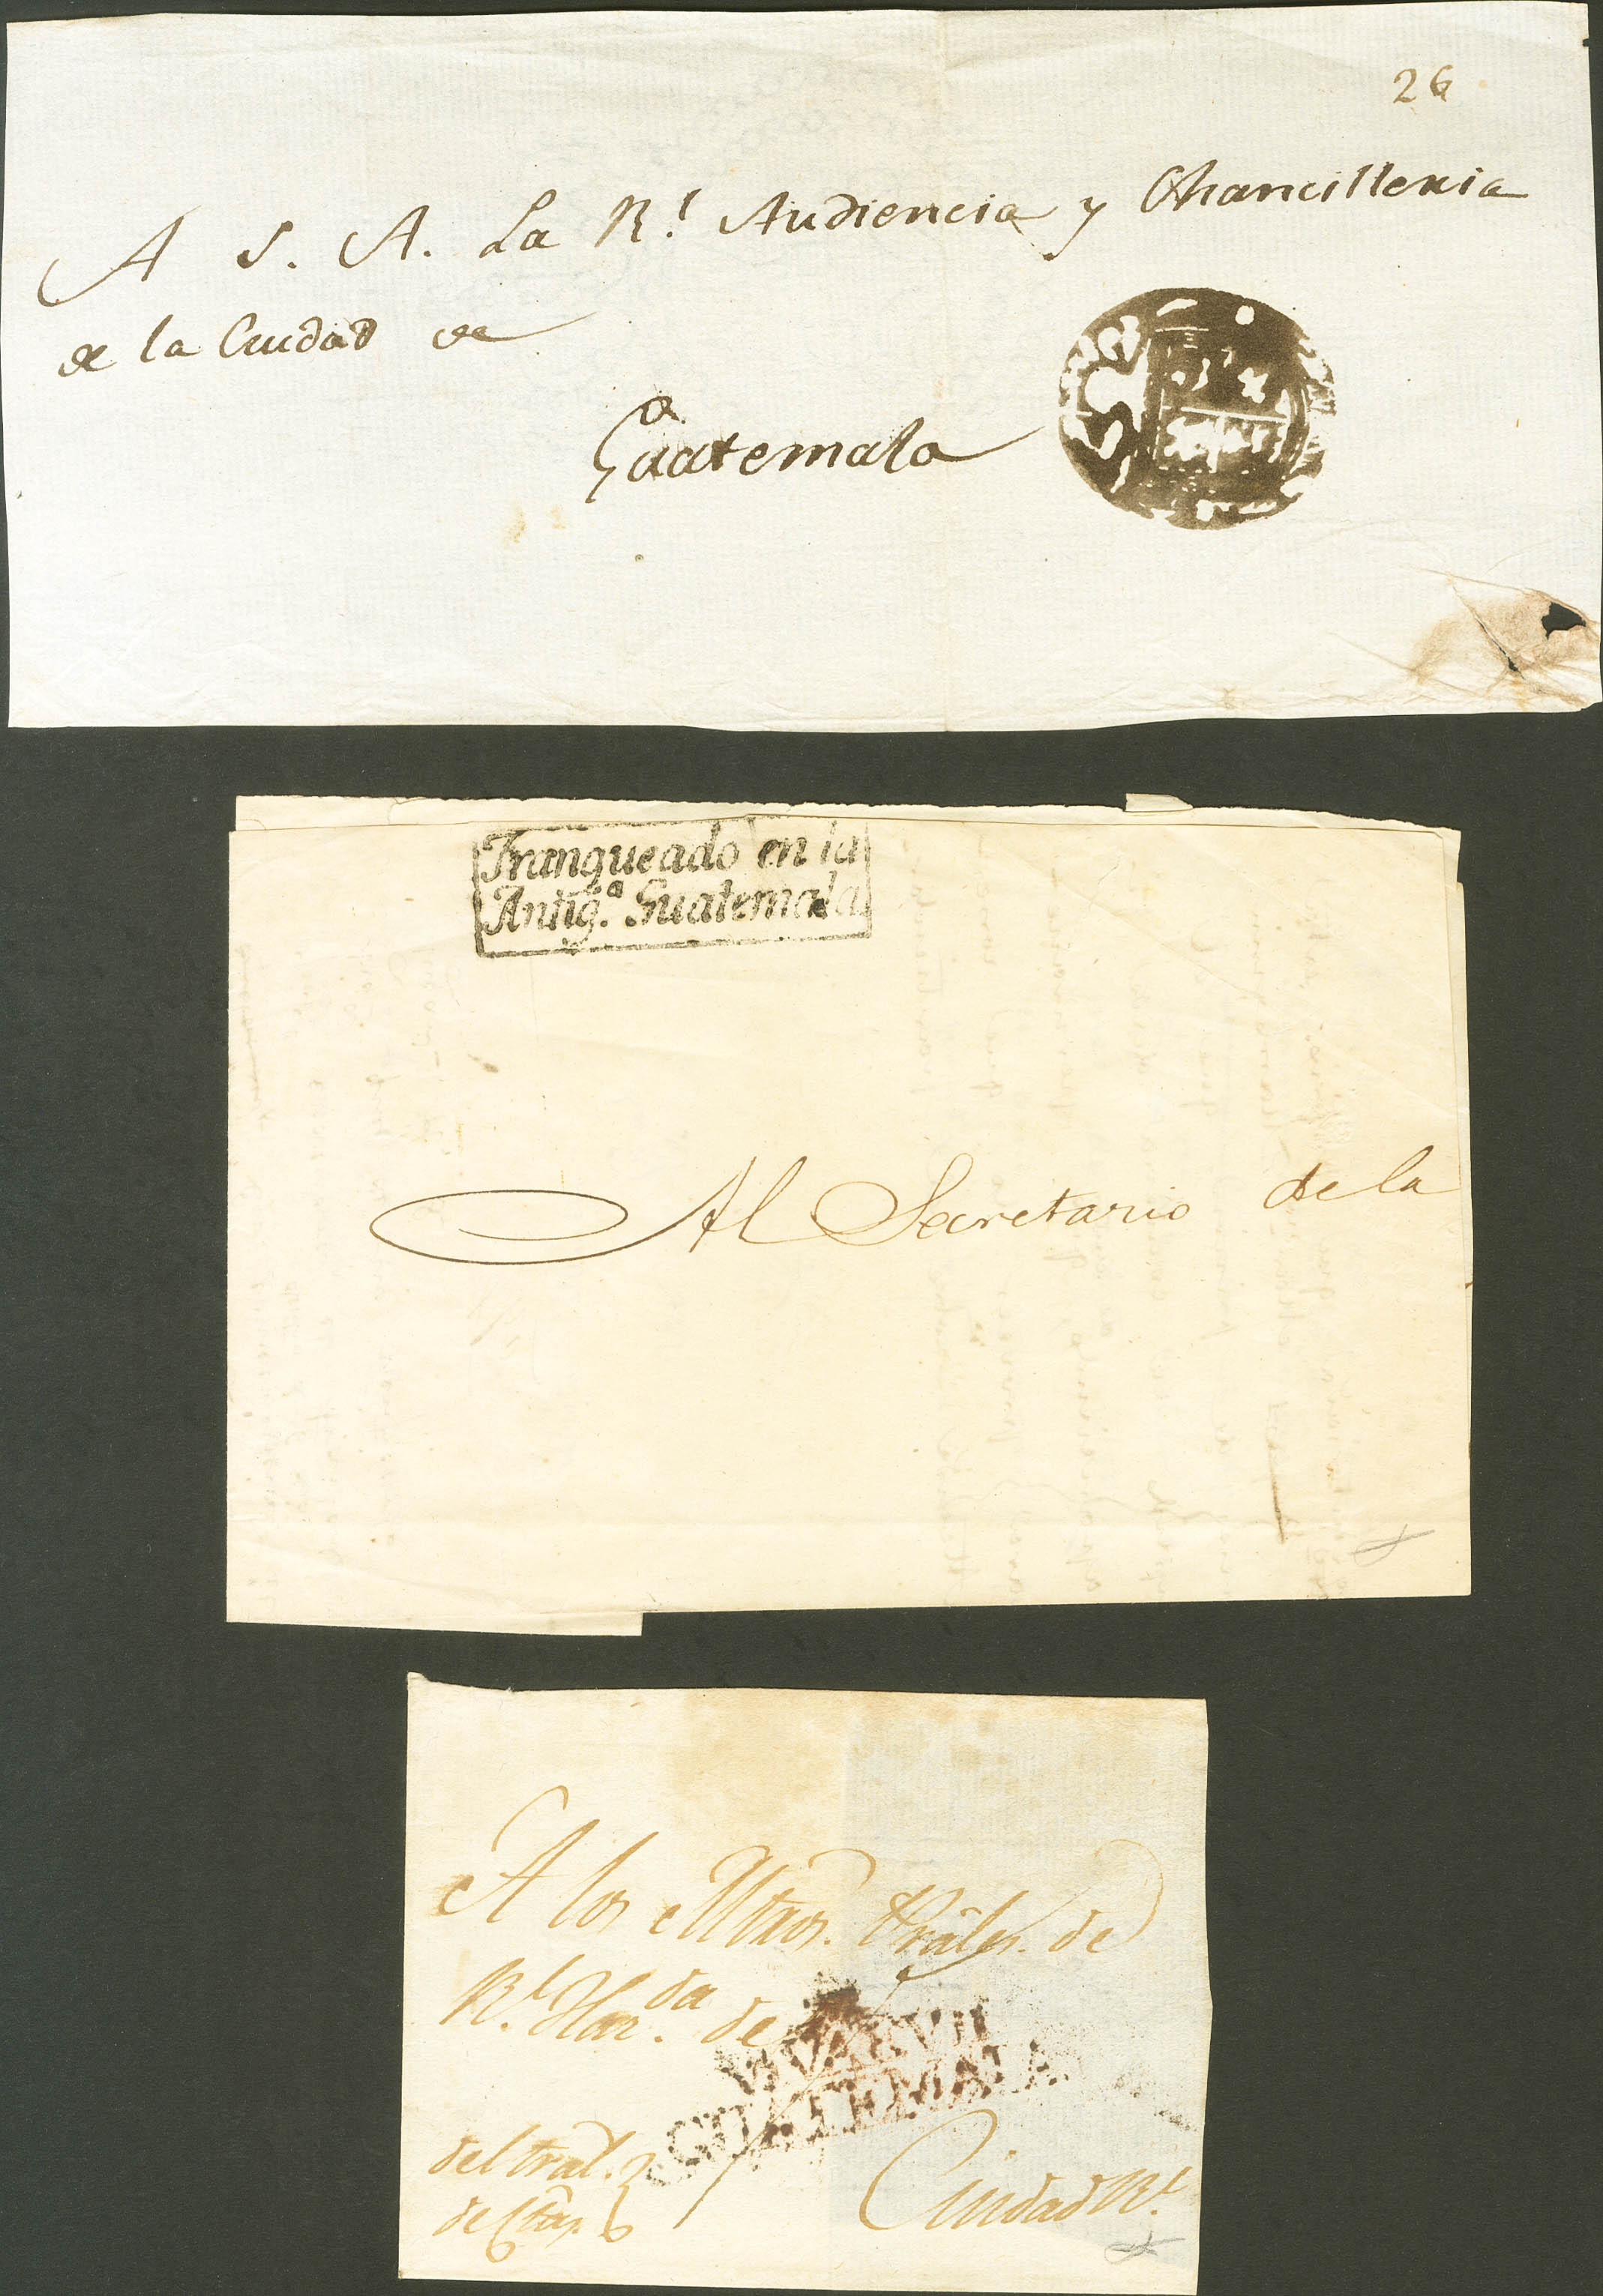 26
A S. A. La Rl. Audiencia y Chancilleria
de la Ciudad de
Guatemala
Franqueado en la
Antig.a Guatemala
Al Secretario de la
A los Mtros. Prāles. de
Rl. Haz.da de
GUATEMALA
del tral. 
de Ctas.
Ciudad Rl.